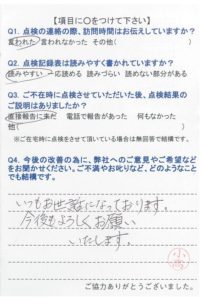 【項目に○をつけて下さい】
Q1. 点検の連絡の際、訪問時間はお伝えしていますか?
言われた 言われなかった その他( )
Q2. 点検記録表は読みやすく書かれていますか?
読みやすい 一応読める 読みづらい 読めない部分がある
Q3. ご不在時に点検させていただいた後、点検結果の
ご説明はありましたか?
直接報告に来た 電話で報告があった 何もなかった
( )
※ご在宅時に点検をさせて頂いている場合は無回答で結構です。
Q4. 今後の改善の為に、弊社へのご意見やご希望など
をお聞かせください。ご不満やお叱りなど、どのようなこと
でも結構です。
いつもお世話になっております。
今後もよろしくお願い
いたします。
ご協力ありがとうございました。